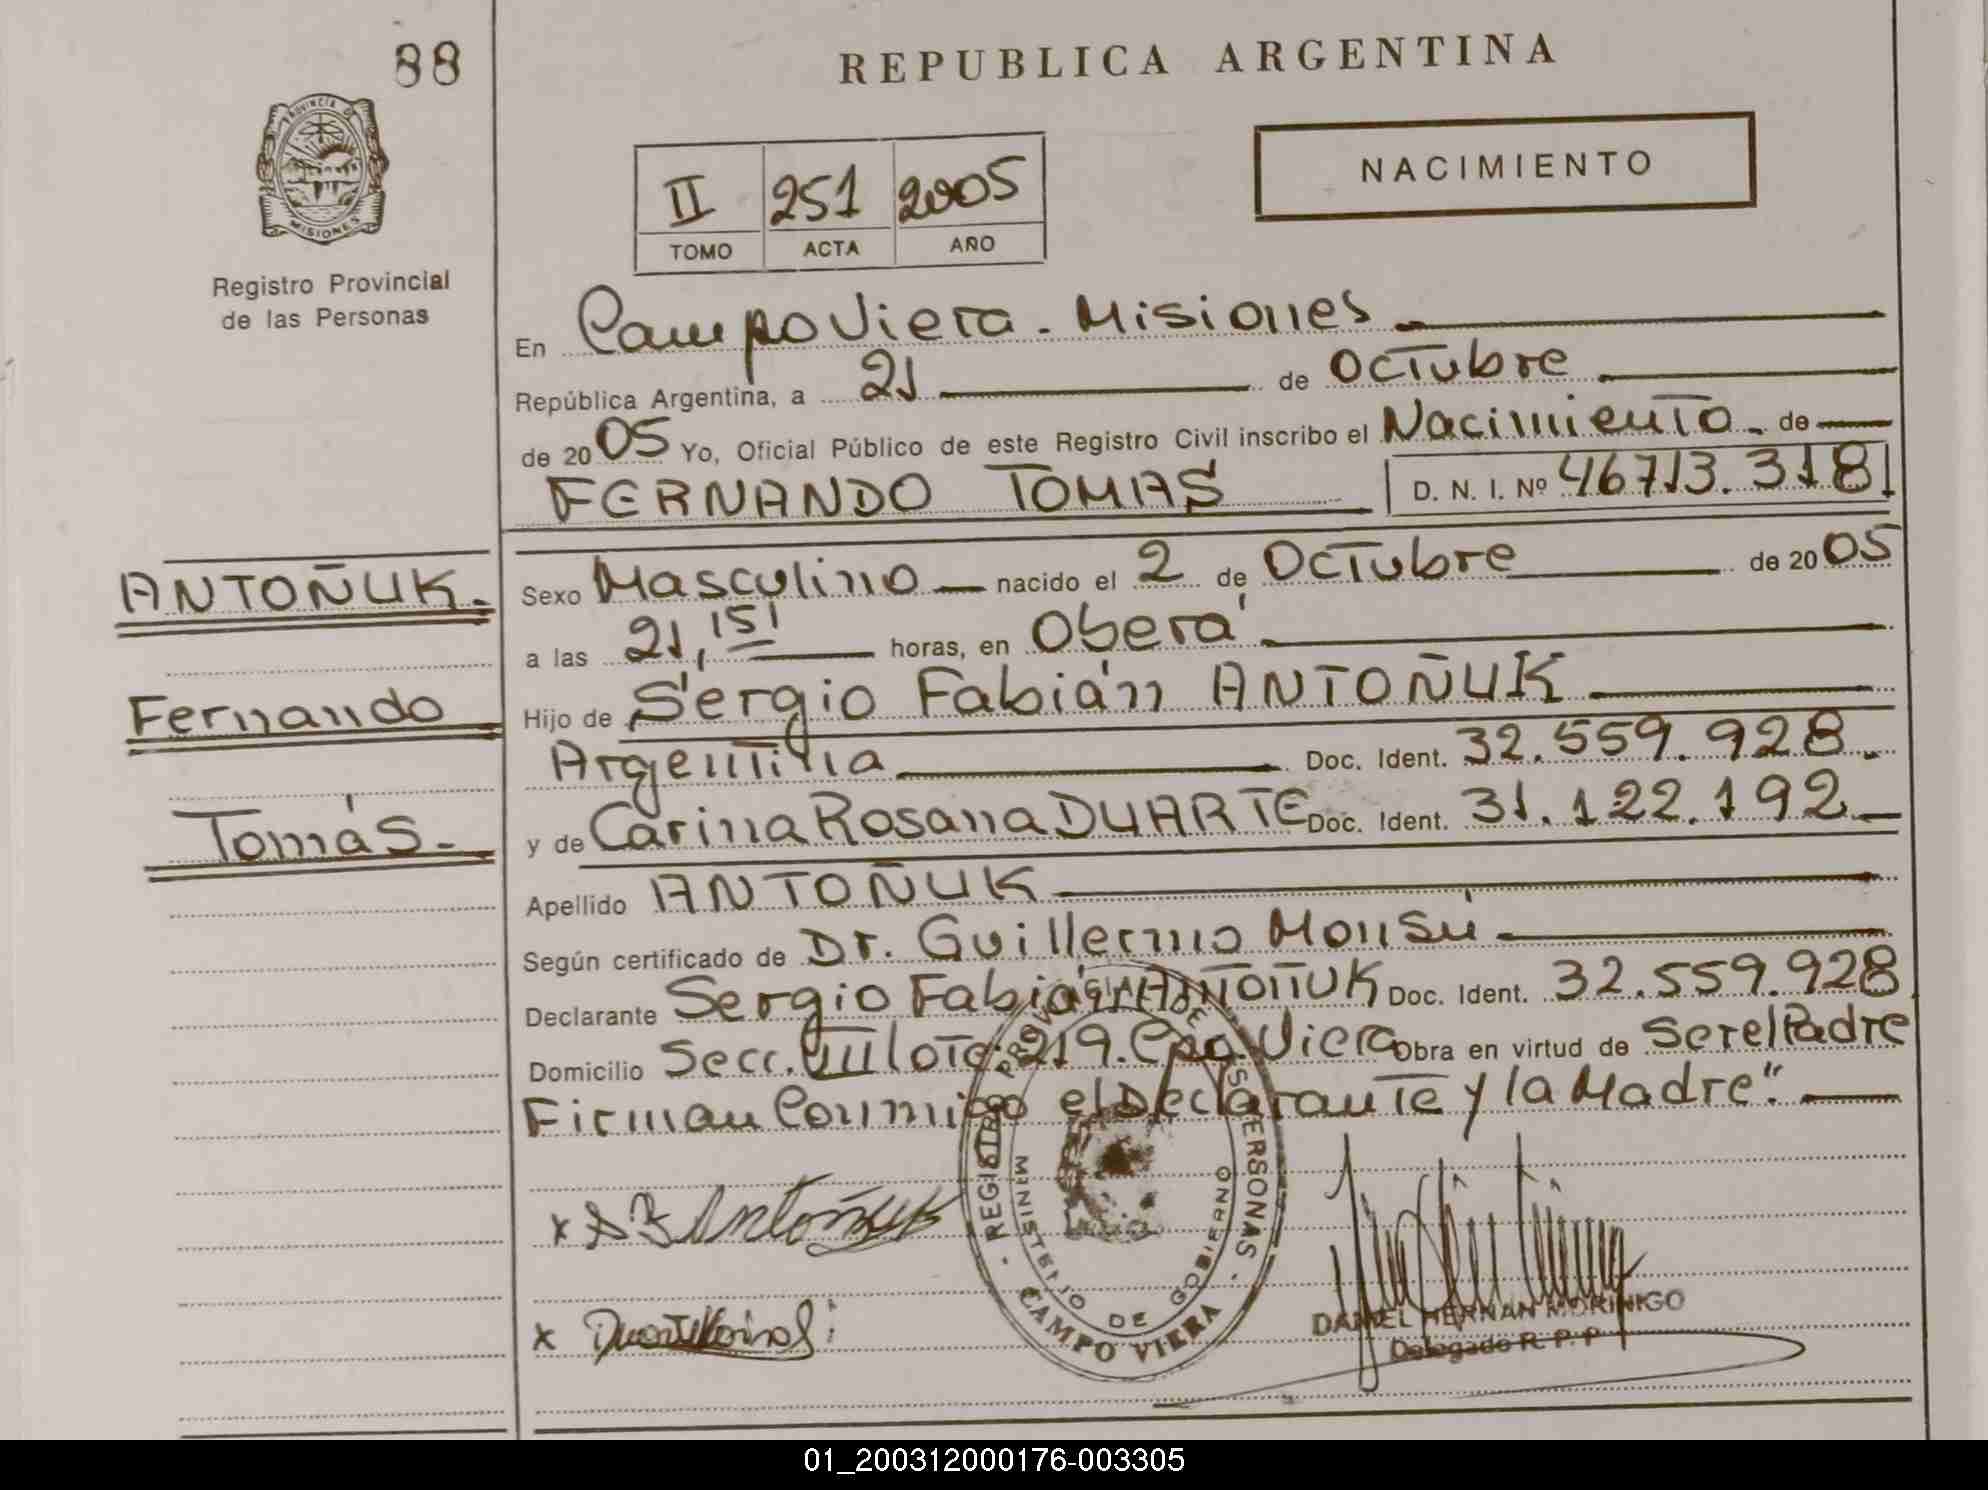 88
REPUBLICA ARGENTINA
PROVINCIA DE
MISIONES
Registro Provincial
de las Personas
II 251 2005
TOMO ACTA AÑO
NACIMIENTO
En Campo Viera - Misiones
República Argentina, a 21 de Octubre
de 2005 Yo, Oficial Público de este Registro Civil inscribo el Nacimiento - de
FERNANDO TOMAS D. N. I. Nº 46713.318
ANTOÑUK.
Fernando
Tomás.-
Sexo Masculino nacido el 2 de Octubre de 2005
a las 21,15' horas, en Oberá
Hijo de Sergio Fabián ANTOÑUK
Argentina Doc. Ident. 32.559.928.
y de Carina Rosana DUARTE Doc. Ident. 31.122.192
Apellido ANTOÑUK
Según certificado de Dr. Guillermo Monsú
Declarante Sergio Fabián ANTOÑUK Doc. Ident. 32.559.928
Domicilio Secc. Lote 219. Cpo. Viera Obra en virtud de Ser el Padre
Firman Conmigo el Declarante y la Madre".
x Antoñuk
x
REGISTRO PROVINCIAL DE LAS PERSONAS
MINISTERIO DE GOBIERNO
CAMPO VIERA
DANIEL HERNAN MORINIGO
Delegado R. P. P.
01_200312000176-003305